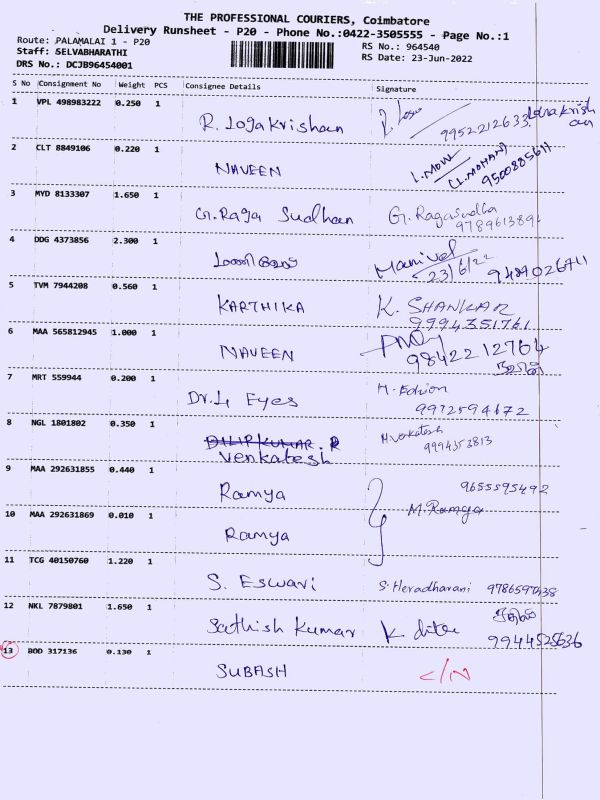 THE PROFESSIONAL COURIERS, Coimbatore
Delivery Runsheet - P20 - Phone No.:0422-3505555 - Page No.:1
Route: PALAMALAI 1 - P20
RS No.: 964540
Staff: SELVABHARATHI
RS Date: 23-Jun-2022
DRS No.: DCJB96454001
S No Consignment No Weight PCS Consignee Details Signature
1 VPL 498983222 0.250 1 R. Logakrishnan 9952212633
2 CLT 8849106 0.220 1 NAVEEN (L.MOHAN) 9500885611
3 MYD 8133307 1.650 1 G. Raga Sudhan G. Ragasudha
978961389
4 DDG 4373856 2.300 1 Manivel
23/6/22
5 TVM 7944208 0.560 1 KARTHIKA K. SHANKAR
9994351761
6 MAA 565812945 1.000 1 NAVEEN 9842212764
7 MRT 559944 0.200 1 Dr. Eyes
9972594672
8 NGL 1801802 0.350 1 DILIP KUMAR. R M Venkatesh
Venkatesh 9994353813
9 MAA 292631855 0.440 1 Ramya 9655595492
M. Ramya
10 MAA 292631869 0.010 1 Ramya
11 TCG 40150760 1.220 1 S. Eswari S. Heradharani 9786597438
12 NKL 7879801 1.650 1 Sathish Kumar K
9944525636
13 BOD 317136 0.130 1 SUBASH C/N